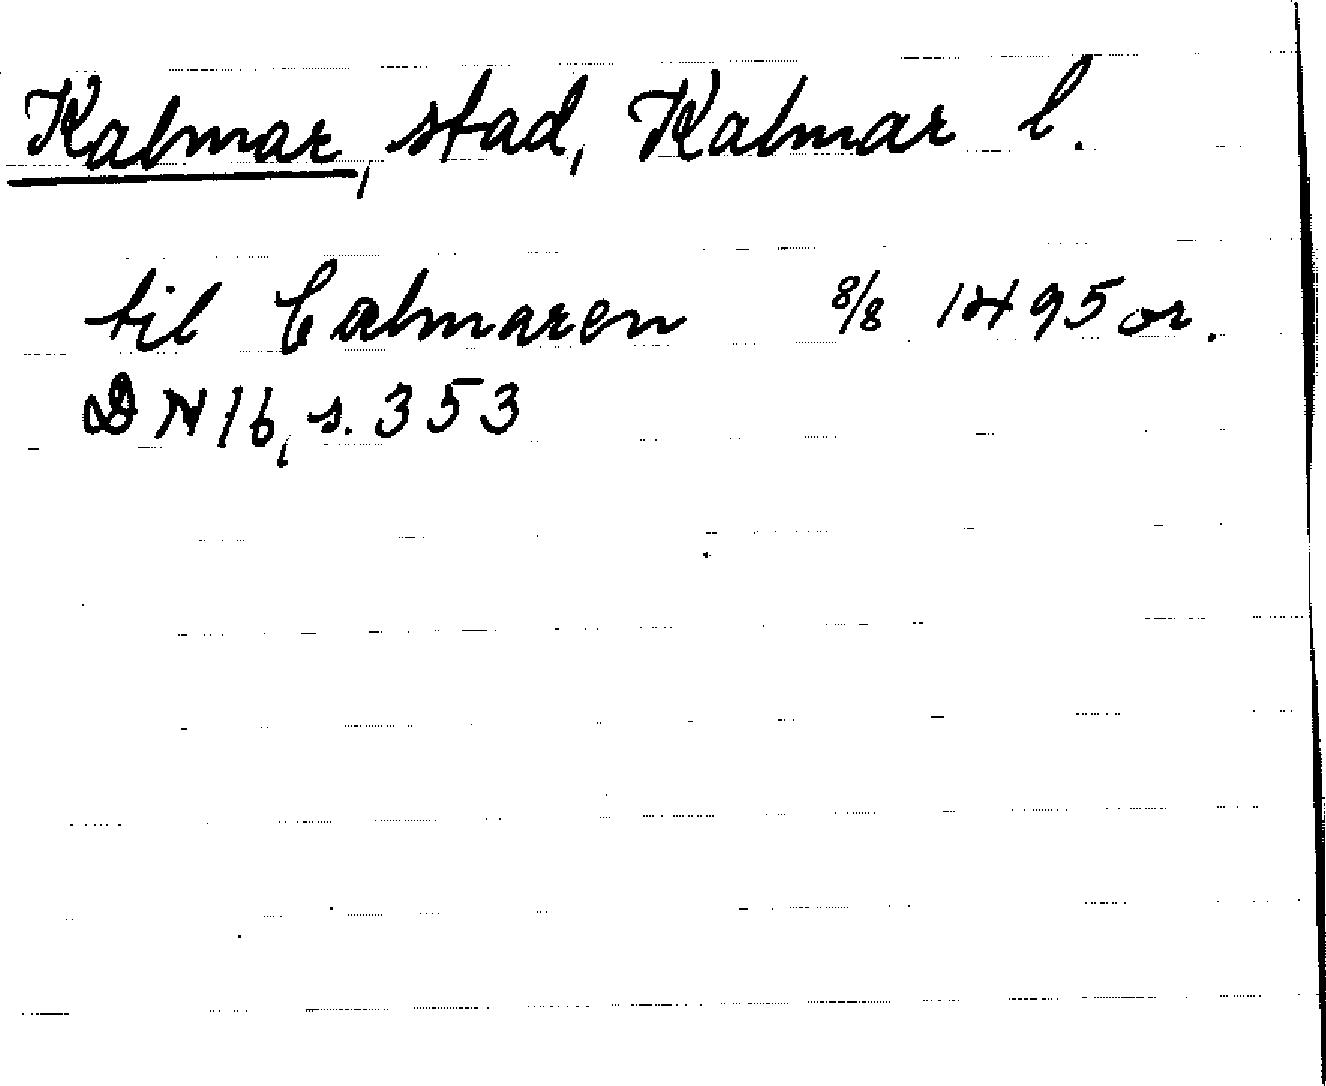 Kalmar, stad, Kalmar l.
til Calmaren 8/8 1495 or.
DN 16, s. 353